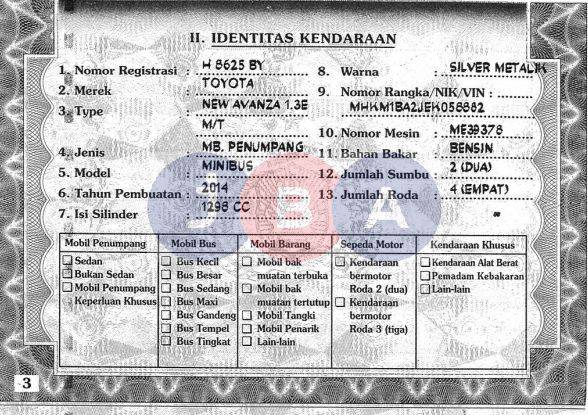 II. IDENTITAS KENDARAAN
1. Nomor Registrasi : H 8625 BY
2. Merek : TOYOTA
3. Type : NEW AVANZA 1.3E
M/T
4. Jenis : MB. PENUMPANG
5. Model : MINIBUS
6. Tahun Pembuatan : 2014
7. Isi Silinder : 1298 CC
8. Warna : SILVER METALIK
9. Nomor Rangka/NIK/VIN :
MHKM1BA2JEK058882
10. Nomor Mesin : ME39378
11. Bahan Bakar : BENSIN
12. Jumlah Sumbu : 2 (DUA)
13. Jumlah Roda : 4 (EMPAT)
JBA
Mobil Penumpang
Sedan
Bukan Sedan
Mobil Penumpang
Keperluan Khusus
Mobil Bus
Bus Kecil
Bus Besar
Bus Sedang
Bus Maxi
Bus Gandeng
Bus Tempel
Bus Tingkat
Mobil Barang
Mobil bak
muatan terbuka
Mobil bak
muatan tertutup
Mobil Tangki
Mobil Penarik
Lain-lain
Sepeda Motor
Kendaraan
bermotor
Roda 2 (dua)
Kendaraan
bermotor
Roda 3 (tiga)
Kendaraan Khusus
Kendaraan Alat Berat
Pemadam Kebakaran
Lain-lain
3